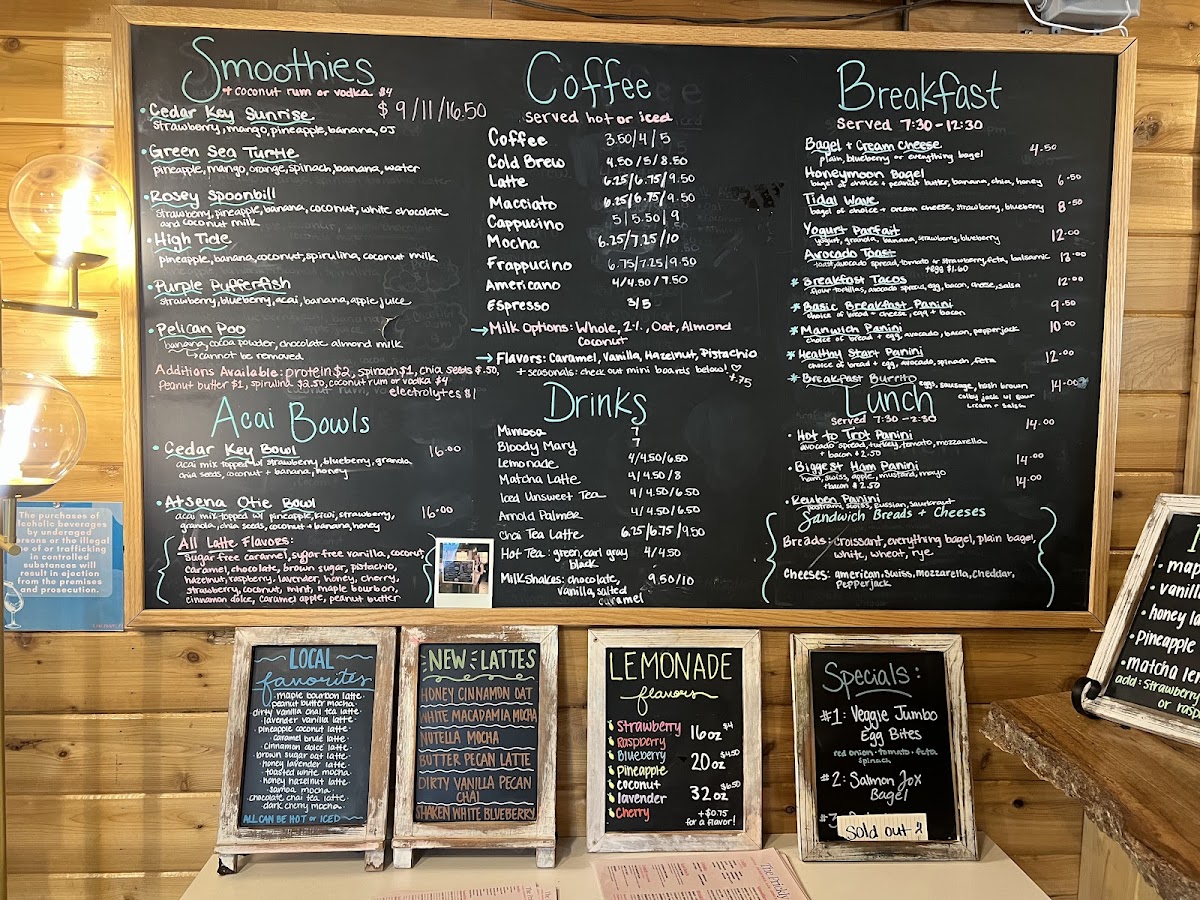 Smoothies
+ coconut rum or vodka $4
$9/11/16.50
• Cedar Key Sunrise
strawberry, mango, pineapple, banana, OJ
• Green Sea Turtle
pineapple, mango, orange, spinach, banana, water
• Rosey Spoonbill
strawberry, pineapple, banana, coconut, white chocolate
and coconut milk
• High Tide
pineapple, banana, coconut, spirulina, coconut milk
• Purple Pufferfish
strawberry, blueberry, acai, banana, apple juice
• Pelican Poo
banana, cocoa powder, chocolate almond milk
cannot be removed
Additions Available: protein $2, spinach $1, chia seeds $.50,
Peanut butter $1, spirulina $2.50, coconut rum or vodka $4
electrolytes $1
Acai Bowls
• Cedar Key Bowl 16.00
acai mix topped w/ strawberry, blueberry, granola
chia seeds, coconut + banana, honey
• Atsena Otie Bowl 16.00
acai mix topped w/ pineapple, kiwi, strawberry,
granola, chia seeds, coconut + banana, honey
All Latte Flavors:
sugar free caramel, sugar free vanilla, coconut,
caramel, chocolate, brown sugar, pistachio,
hazelnut, raspberry, lavender, honey, cherry,
strawberry, coconut, mint, maple bourbon,
cinnamon dolce, caramel apple, peanut butter
Coffee
served hot or iced
Coffee 3.50/4/5
Cold Brew 4.50/5/8.50
Latte 6.25/6.75/9.50
Macciato 6.25/6.75/9.50
Cappucino 5/5.50/9
Mocha 6.25/7.25/10
Frappucino 6.75/7.25/9.50
Americano 4/4.50/7.50
Espresso 3/5
→ Milk Options: Whole, 2%, Oat, Almond
Coconut
→ Flavors: Caramel, Vanilla, Hazelnut, Pistachio
+ seasonals: check out mini boards below! ♡
$.75
Drinks
Mimosa 7
Bloody Mary 7
Lemonade 4/4.50/6.50
Matcha Latte 4/4.50/8
Iced Unsweet Tea 4/4.50/6.50
Arnold Palmer 4/4.50/6.50
Chai Tea Latte 6.25/6.75/9.50
Hot Tea: green, earl gray 4/4.50
black
Milkshakes: chocolate, 9.50/10
vanilla, salted
caramel
Breakfast
Served 7:30-12:30
Bagel + Cream Cheese 4.50
plain, blueberry or everything bagel
Honeymoon Bagel
bagel of choice + peanut butter, banana, chia, honey 6.50
Tidal Wave
bagel of choice + cream cheese, strawberry, blueberry 8.50
Yogurt Parfait 12.00
yogurt, granola, banana, strawberry, blueberry
Avocado Toast 13.00
toast, avocado spread, tomato or strawberry, feta, balsamic
+ egg $1.60
* Breakfast Tacos 12.00
flour tortillas, avocado spread, egg, bacon, cheese, salsa
* Basic Breakfast Panini 9.50
choice of bread + cheese, egg + bacon
* Manwich Panini 10.00
choice of bread + egg, avocado, bacon, pepperjack
* Healthy Start Panini 12.00
choice of bread + egg, avocado, spinach, feta
* Breakfast Burrito eggs, sausage, hash brown 14.00
colby jack w/ sour
cream + salsa
Lunch
served 7:30-2:30
• Hot to Trot Panini 14.00
avocado spread, turkey, tomato, mozzarella
+ bacon $2.50
• Biggest Ham Panini 14.00
ham, swiss, apple, mustard, mayo
+bacon $2.50
• Reuben Panini 14.00
pastrami, swiss, russian, sauerkraut
Sandwich Breads + Cheeses
Breads: croissant, everything bagel, plain bagel,
white, wheat, rye
Cheeses: american, swiss, mozzarella, cheddar,
Pepperjack
The purchases of
alcoholic beverages
by underaged
persons or the illegal
use of or trafficking
in controlled
substances will
result in ejection
from the premises
and prosecution.
LOCAL
favorites
• maple bourbon latte •
peanut butter mocha •
• dirty vanilla chai tea latte •
• lavender vanilla latte •
• pineapple coconut latte •
• caramel brulé latte •
• cinnamon dolce latte •
• brown sugar oat latte •
• honey lavender latte •
• toasted white mocha •
• honey hazelnut latte •
• samba mocha •
• chocolate chai tea latte •
• dark cherry mocha •
ALL CAN BE HOT or ICED
NEW LATTES
HONEY CINNAMON OAT
WHITE MACADAMIA MOCHA
NUTELLA MOCHA
BUTTER PECAN LATTE
DIRTY VANILLA PECAN
CHAI
SHAKEN WHITE BLUEBERRY
LEMONADE
flavors
Strawberry
Raspberry
Blueberry
Pineapple
coconut
lavender
Cherry
16oz $4
20oz $4.50
32oz $6.50
+$0.75
for a flavor!
Specials:
#1: Veggie Jumbo
Egg Bites
red onion • tomato • feta
spinach
#2: Salmon Jox
Bagel
#3
Sold out
• honey la
• pineapple
• matcha le
add: strawberry
or rasp